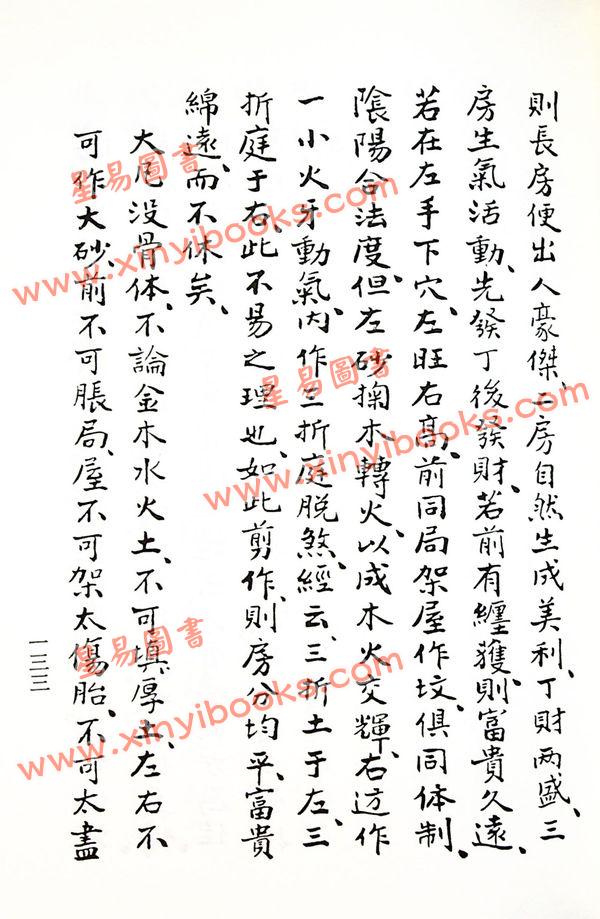 則長房便出人豪傑、二房自然生成美利、丁財两盛、三
房生氣活動、先發丁後發財、若前有纏獲、則富貴久遠、
若在左手下穴、左旺右高、前同局架屋作坟、俱同体制、
陰陽合法度、但左砂掬木轉火、以成木火交輝、右边作
一小火牙動氣、内作三折庭脱煞、經云、三折土于左、三
折庭于右、此不易之理也、如此剪作、則房分均平、富貴
綿遠、而不休矣、
大尾没骨体、不論金木水火土、不可填厚土、左右不
可作大砂、前不可脹局、屋不可架太傷胎、不可太盡
一三三
星易圖書
www.xinyibooks.com
星易圖書
www.xinyibooks.com
星易圖書
www.xinyibooks.com